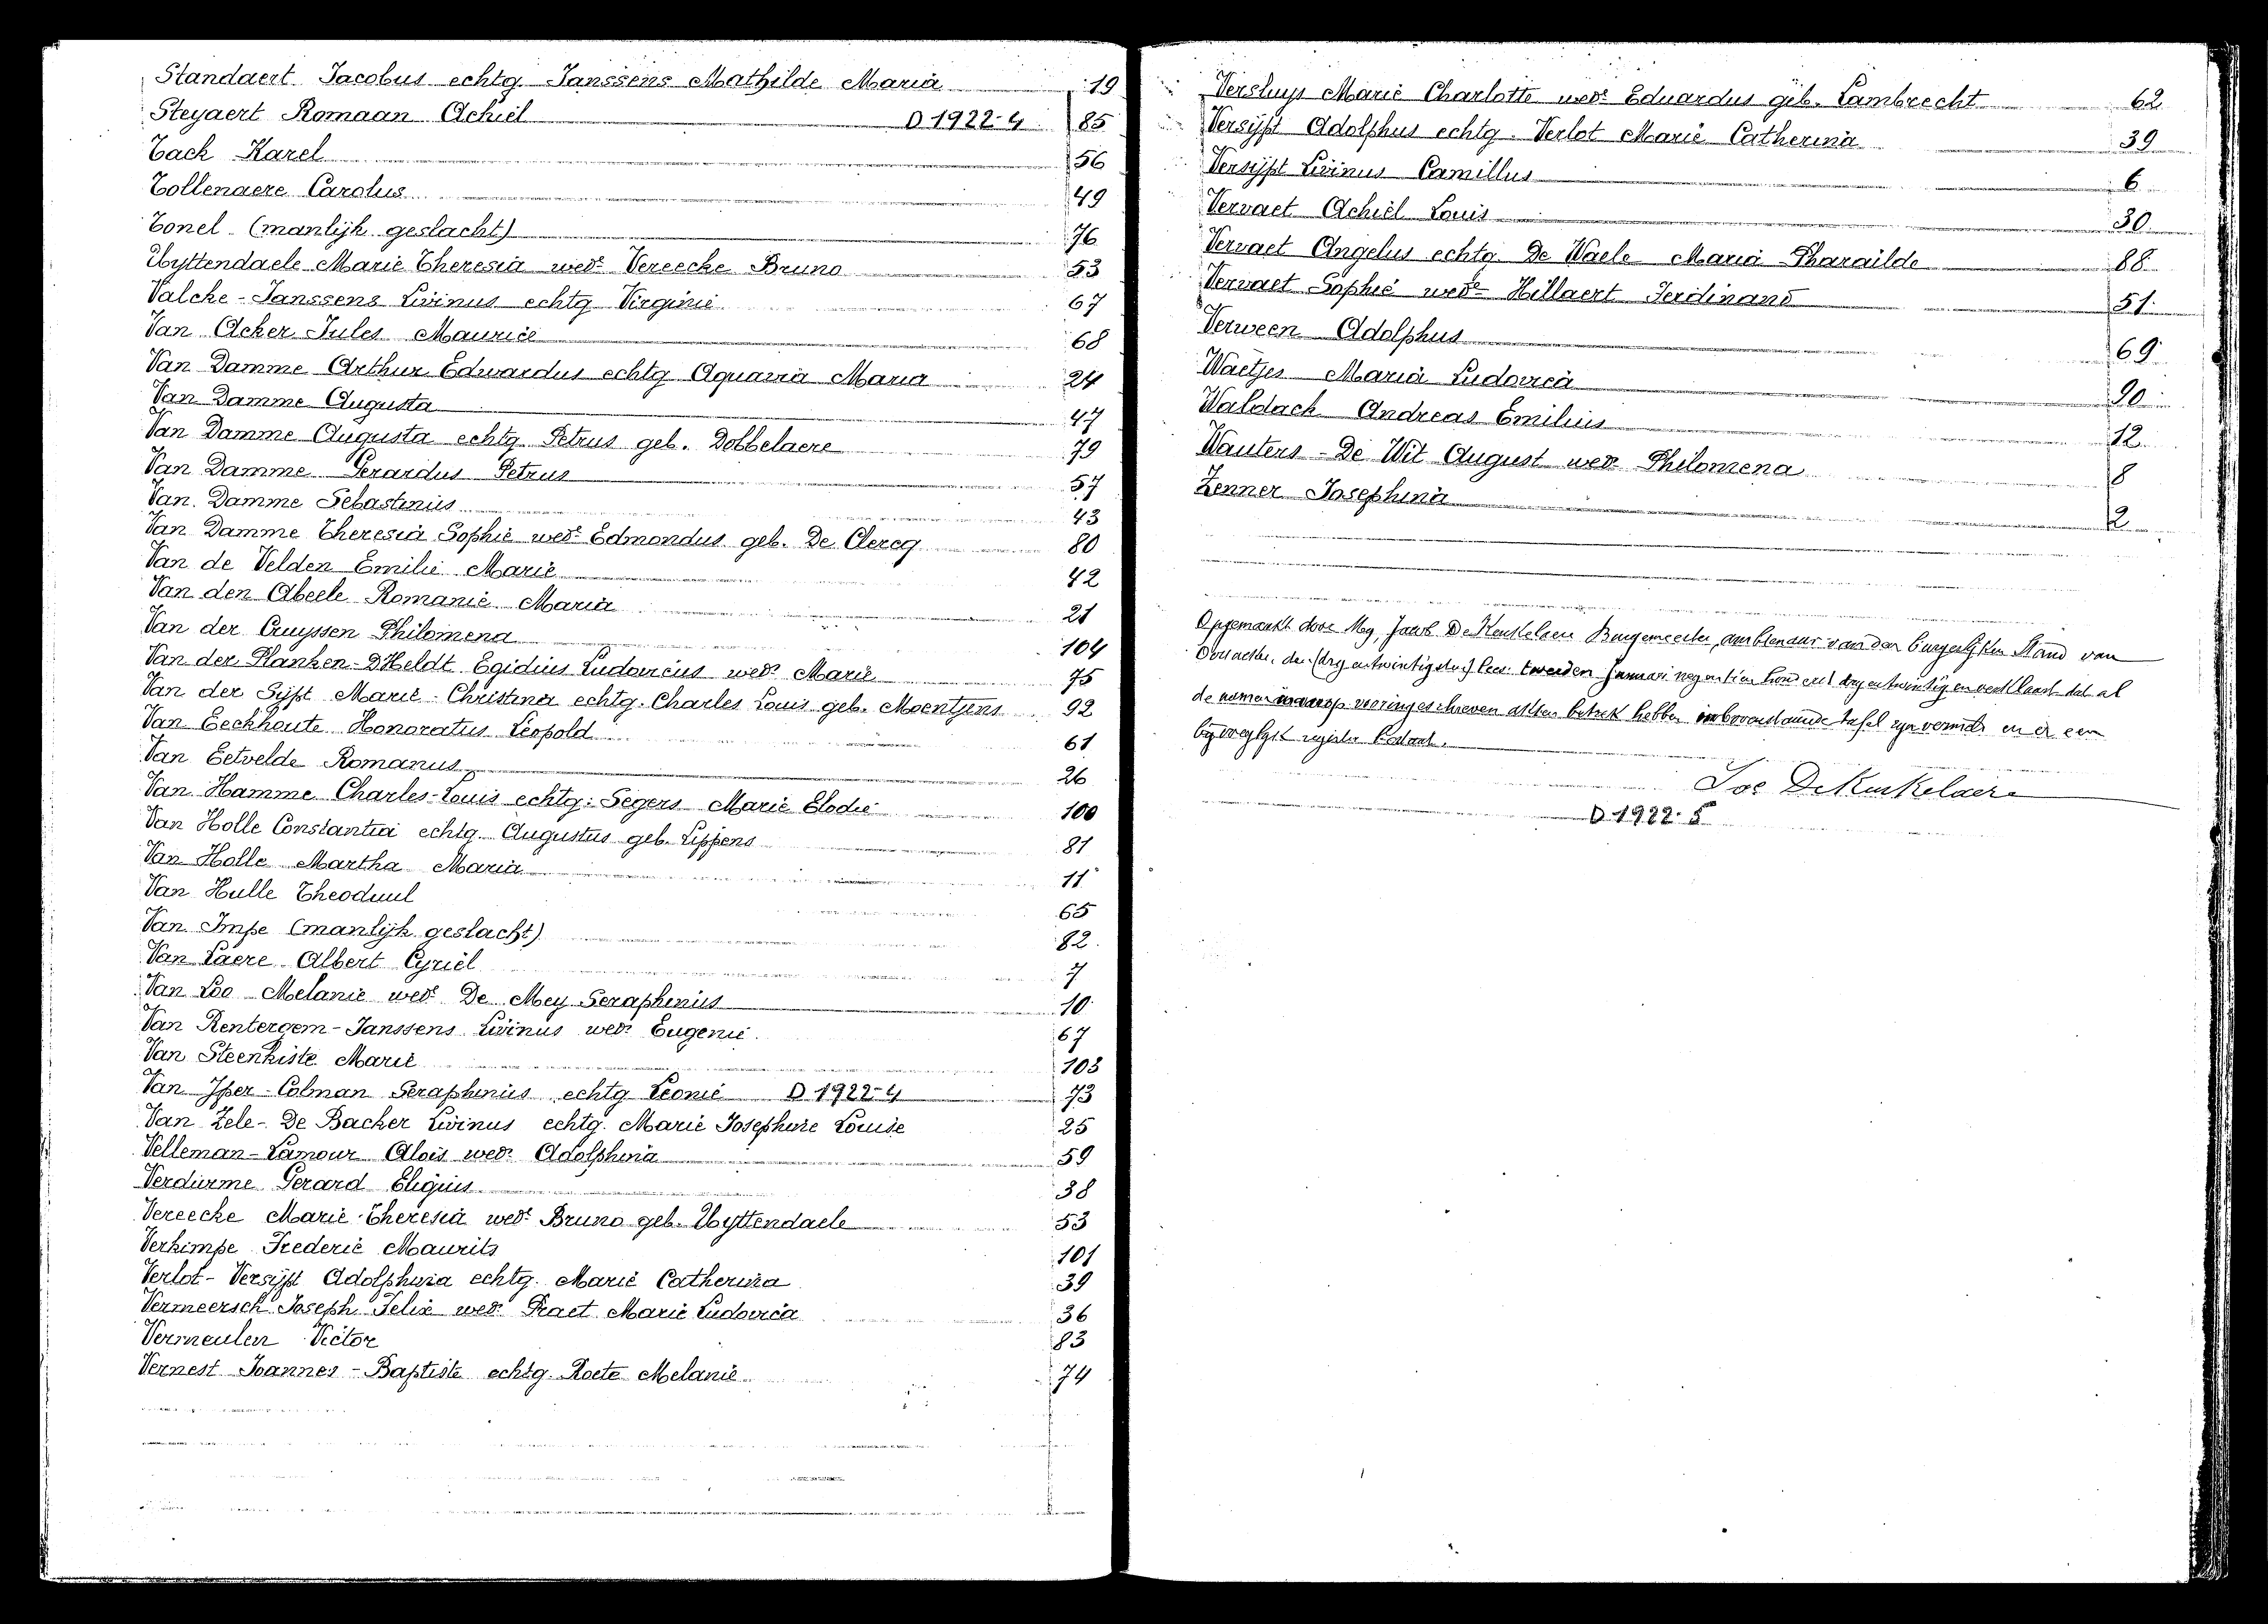 Standaert Jacobus echtg. Janssens Mathilde Maria 19
Steyaert Romaan Achiel D 1922-4 85
Tack Karel 56
Tollenaere Carolus 49
Tonel (manlijk geslacht) 76
Uyttendaele Marie Theresia wede Vereecke Bruno 53
Valcke-Janssens Livinus echtg Virginie 67
Van Acker Jules Maurice 68
Van Damme Arthur Edwardus echtg Aquaria Maria 24
Van Damme Augusta 47
Van Damme Augusta echtg. Petrus geb. Dobbelaere 79
Van Damme Gerardus Petrus 57
Van Damme Sebastinus 43
Van Damme Theresia Sophie wede Edmondus geb. De Clercq 80
Van de Velden Emilie Marie 42
Van den Abeele Romanie Maria 21
Van der Cruyssen Philomena 104
Van der Planken-D'Heldt Egidius Ludovicus wedr Marie 75
Van der Sijpt Marie-Christina echtg. Charles Louis geb. Moentjens 92
Van Eeckhoute Honoratus Leopold 61
Van Eetvelde Romanus 26
Van Hamme Charles-Louis echtg: Segers Marie Elodie 100
Van Holle Constantia echtg. Augustus geb. Lippens 81
Van Holle Martha Maria 11
Van Hulle Theoduul 65
Van Impe (manlijk geslacht) 82
Van Laere Albert Cyriel 7
Van Loo Melanie wede De Mey Seraphinus 10
Van Rentergem-Janssens Livinus wedr Eugenie 67
Van Steenkiste Marie 103
Van Yper-Colman Seraphinus echtg Leonie D 1922-4 73
Van Zele-De Backer Livinus echtg. Marie Josephine Louise 25
Velleman-Lamour Alois wedr Adolphina 59
Verdurme Gerard Eligius 38
Vereecke Marie-Theresia wede Bruno geb. Uyttendaele 53
Verkimpe Frederic Maurits 101
Verlot-Versijpt Adolphina echtg. Marie Catherina 39
Vermeersch Joseph Felix wedr Praet Marie Ludovica 36
Vermeulen Victor 83
Vernest Joannes-Baptiste echtg. Roete Melanie 74
Versluys Marie Charlotte wede Eduardus geb. Lambrecht 62
Versijpt Adolphus echtg. Verlot Marie Catherina 39
Versijpt Livinus Camillus 6
Vervaet Achiel Louis 30
Vervaet Angelus echtg De Waele Maria Pharailde 88
Vervaet Sophie wede Hillaert Ferdinand 51
Verween Adolphus 69
Waetjes Maria Ludovica 90
Waldack Andreas Emilius 12
Wauters-De Wit August wedr Philomena 8
Zenner Josephina 2
Opgemaakt door Mij, Jacob De Keukelaere Burgemeester, ambtenaar van den burgerlijken Stand van
den (dryentwintigsten) tweeden Januari negentien honderd dryentwintig en verklaart dat al
de namen waarop ingeschreven akten betrek hebben in bovenstaande tafel zijn vermeld en er een
bijvoeglijk register bestaat.
Jac DeKeukelaere
D 1922-5